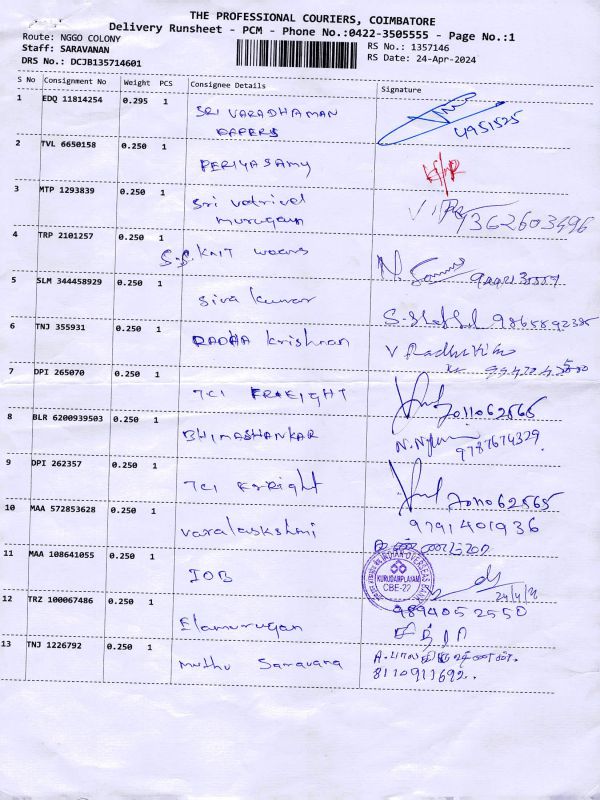 THE PROFESSIONAL COURIERS, COIMBATORE
Delivery Runsheet - PCM - Phone No.:0422-3505555 - Page No.:1
Route: NGGO COLONY
RS No.: 1357146
Staff: SARAVANAN
RS Date: 24-Apr-2024
DRS No.: DCJB135714601
S No Consignment No Weight PCS Consignee Details Signature
1 EDQ 11814254 0.295 1 SRI VARADHAMAN
4951525
2 TVL 6650158 0.250 1 PERIYASAMY
3 MTP 1293839 0.250 1 Sri Vetrivel
murugan 9362603496
4 TRP 2101257 0.250 1 S.S. KNIT wears
5 SLM 344458929 0.250 1 Siva kumar
9865892385
6 TNJ 355931 0.250 1 RADHA Krishnan
7 DPI 265070 0.250 1 TCI FRAEIGHT
7011062565
8 BLR 6200939503 0.250 1 BHIMASHANKAR
9787674329
9 DPI 262357 0.250 1 TCI
7011062565
10 MAA 572853628 0.250 1 Varalaskshmi 9791401936
11 MAA 108641055 0.250 1 IOB
INDIAN OVERSEAS BANK
KURUDAMPLAYAM
CBE-22
12 TRZ 100067486 0.250 1 Elamurugan 9894052550
சித்ரா
13 TNJ 1226792 0.250 1 Muthu Saravana
8110911692